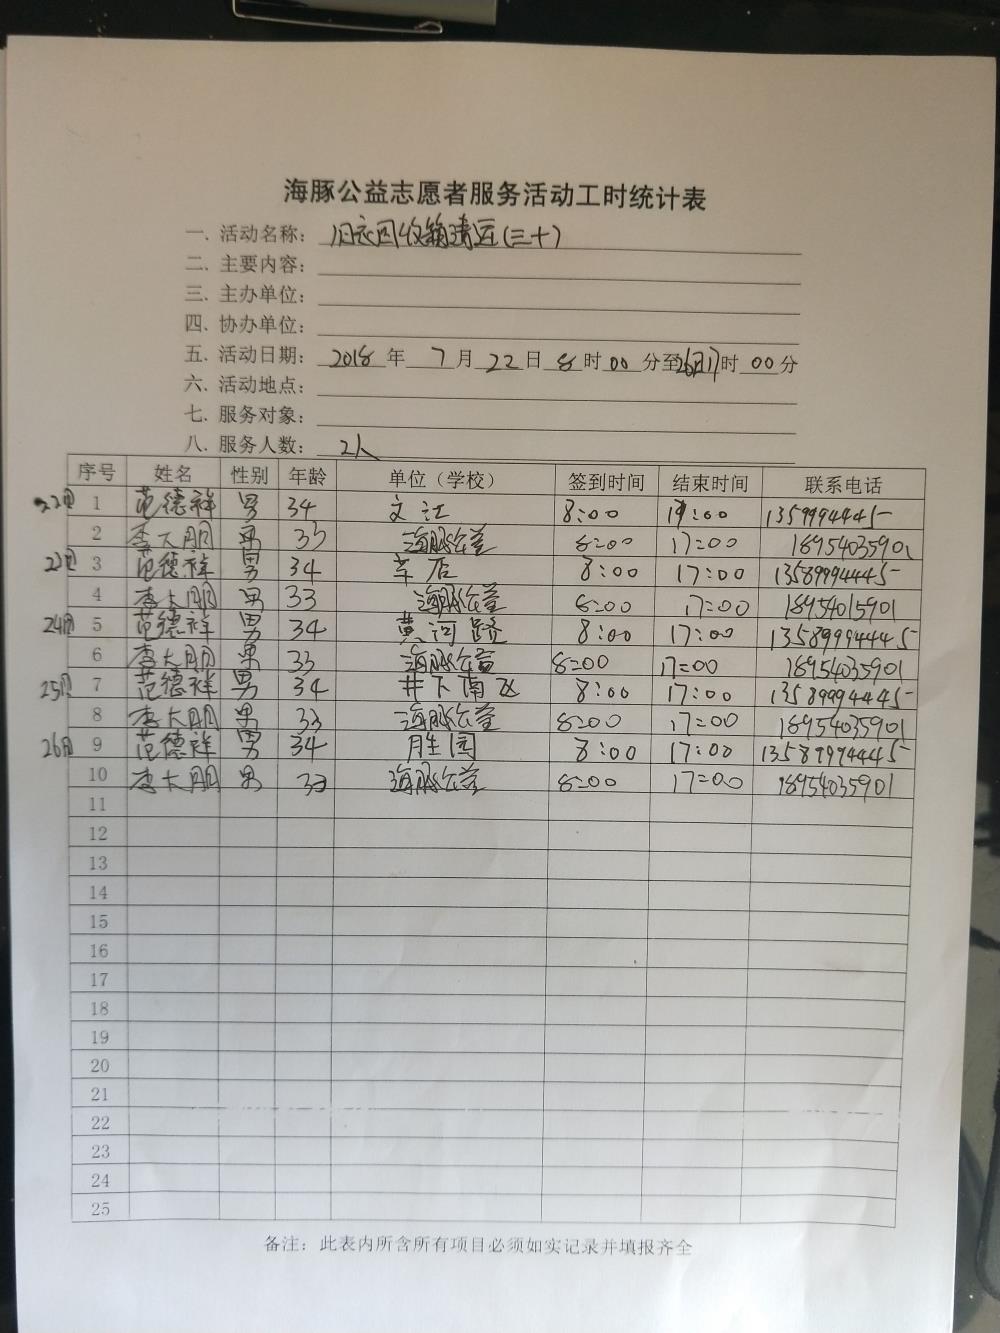 海豚公益志愿者服务活动工时统计表
一. 活动名称: 旧衣回收箱清运(三十)
二. 主要内容:
三. 主办单位:
四. 协办单位:
五. 活动日期: 2018 年 7 月 22 日 8 时 00 分至26日17时 00 分
六. 活动地点:
七. 服务对象:
八. 服务人数: 2人
序号 姓名 性别 年龄 单位（学校） 签到时间 结束时间 联系电话
22日 1 范德祥 男 34 文汇 8:00 17:00 1359994445
2 李大朋 男 33 海豚公益 8:00 17:00 18954035901
23日 3 范德祥 男 34 辛店 8:00 17:00 13589994445
4 李大朋 男 33 海豚公益 8:00 17:00 18954015901
24日 5 范德祥 男 34 黄河路 8:00 17:00 13589994445
6 李大朋 男 33 海豚公益 8:00 17:00 18954035901
25日 7 范德祥 男 34 井下南区 8:00 17:00 13589994445
8 李大朋 男 33 海豚公益 8:00 17:00 18954035901
26日 9 范德祥 男 34 胜园 8:00 17:00 13589994445
10 李大朋 男 33 海豚公益 8:00 17:00 18954035901
11
12
13
14
15
16
17
18
19
20
21
22
23
24
25
备注: 此表内所含所有项目必须如实记录并填报齐全